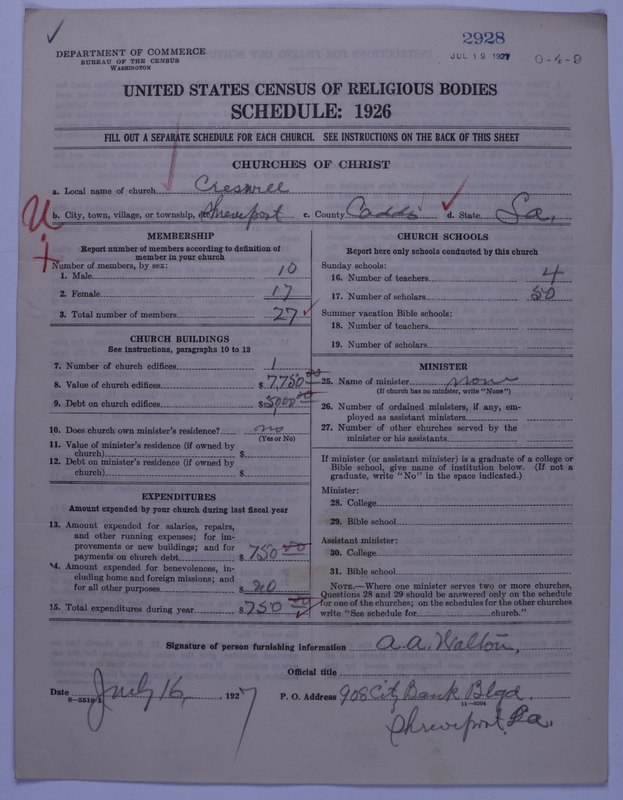 2928
JUL 19 1927
0-4-9
DEPARTMENT OF COMMERCE
BUREAU OF THE CENSUS
WASHINGTON
UNITED STATES CENSUS OF RELIGIOUS BODIES
SCHEDULE: 1926
FILL OUT A SEPARATE SCHEDULE FOR EACH CHURCH. SEE INSTRUCTIONS ON THE BACK OF THIS SHEET
CHURCHES OF CHRIST
a. Local name of church Creswell
b. City, town, village, or township, Shreveport c. County Caddo d. State La.
U
MEMBERSHIP
Report number of members according to definition of
member in your church
Number of members, by sex:
1. Male 10
2. Female 17
3. Total number of members 27
CHURCH BUILDINGS
See instructions, paragraphs 10 to 12
7. Number of church edifices 1
8. Value of church edifices $ 7,750 00
9. Debt on church edifices $ 5,000 00
10. Does church own minister's residence? no
(Yes or No)
11. Value of minister's residence (if owned by
church) $
12. Debt on minister's residence (if owned by
church) $
EXPENDITURES
Amount expended by your church during last fiscal year
13. Amount expended for salaries, repairs,
and other running expenses; for im-
provements or new buildings; and for
payments on church debt $ 750 00
14. Amount expended for benevolences, in-
cluding home and foreign missions; and
for all other purposes $
15. Total expenditures during year $ 750 00
CHURCH SCHOOLS
Report here only schools conducted by this church
Sunday schools:
16. Number of teachers 4
17. Number of scholars 50
Summer vacation Bible schools:
18. Number of teachers
19. Number of scholars
MINISTER
25. Name of minister None
(If church has no minister, write "None")
26. Number of ordained ministers, if any, em-
ployed as assistant ministers
27. Number of other churches served by the
minister or his assistants
If minister (or assistant minister) is a graduate of a college or
Bible school, give name of institution below. (If not a
graduate, write "No" in the space indicated.)
Minister:
28. College
29. Bible school
Assistant minister:
30. College
31. Bible school
NOTE.—Where one minister serves two or more churches,
Questions 28 and 29 should be answered only on the schedule
for one of the churches; on the schedules for the other churches
write "See schedule for church."
Signature of person furnishing information A. A. Walton,
Official title
Date July 16, 1927 P. O. Address 908 City Bank Blgd.
8-5518
11-9204
Shreveport, La.